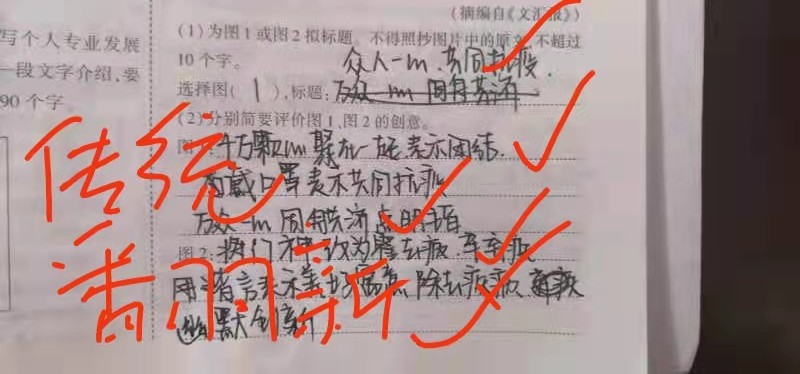 (摘编自《文汇报》)
写个人专业发展
一段文字介绍,要
90个字
(1)为图1或图2拟标题。不得照抄图片中的原文,不超过
10个字。
众人一心 共同抗疫.
选择图(1),标题:万众一心 同舟共济
(2)分别简要评价图1、图2的创意。
图 千万颗心聚在一起表示团结.
口罩表示共同抗疫
万众一心 同舟共济 点明
图2:门神 改为 疫.
用 言表示美好 除去疫
幽默创新
传统
新